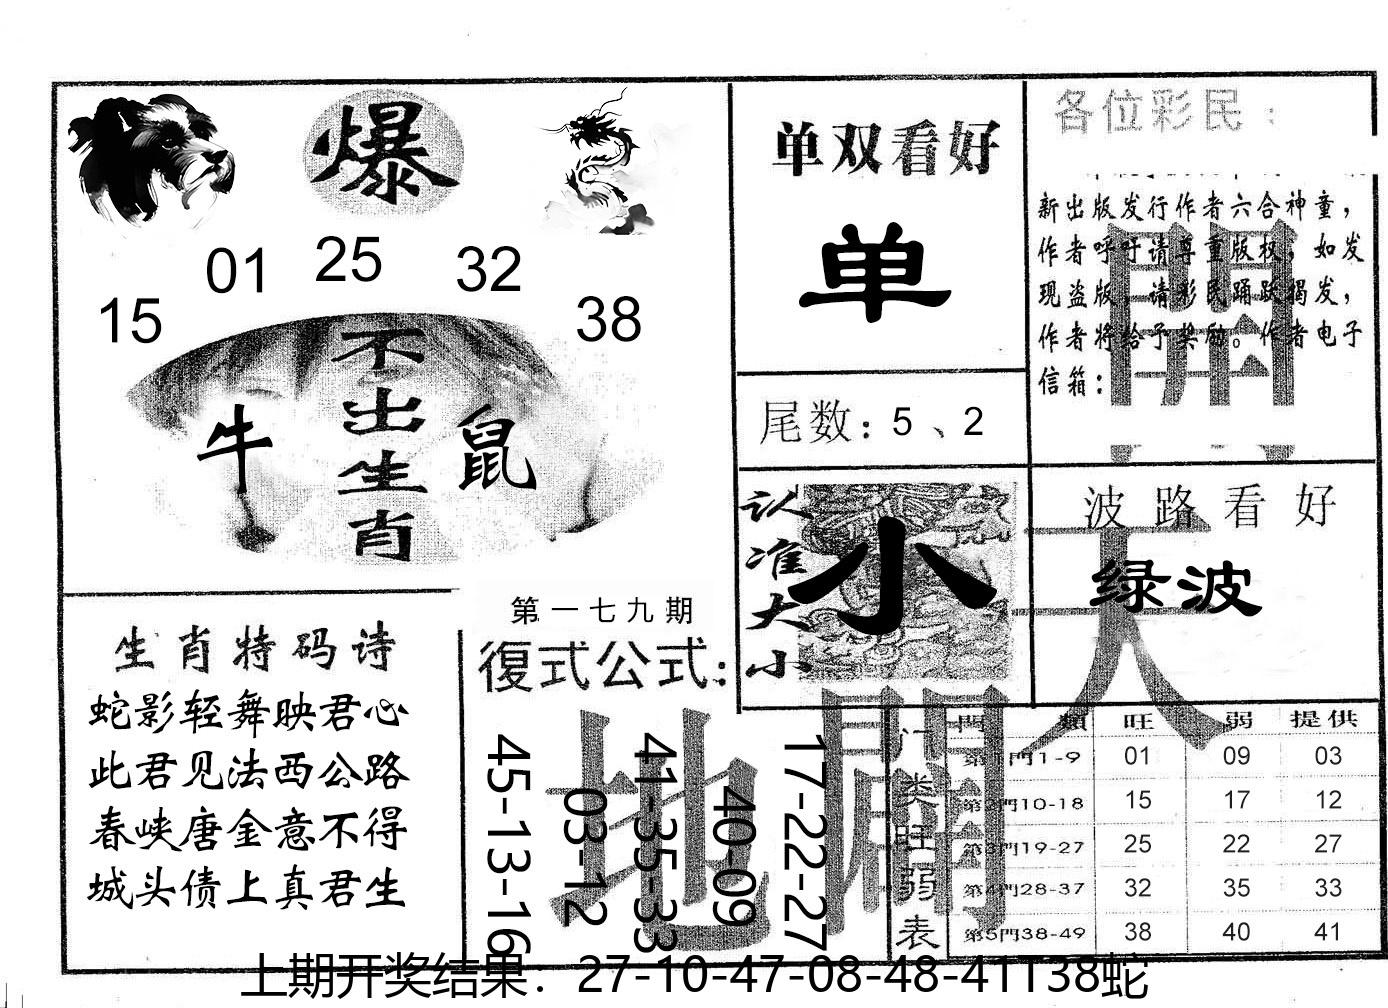 爆
01 25 32
15 38
不出生肖
牛 鼠
单双看好
单
尾数：5、2
各位彩民：
新出版发行作者六合神童，
作者呼吁请尊重版权，如发
现盗版，请彩民踊跃揭发，
作者将给予奖励。作者电子
信箱：
認准大小
小
波路看好
绿波
天
地
第一七九期
復式公式：
45-13-16
03-12
41-35-33
40-09
17-22-27
生肖特码诗
蛇影轻舞映君心
此君见法西公路
春峡唐金意不得
城头债上真君生
门类旺弱表
門類 旺 弱 提供
第1門1-9 01 09 03
第2門10-18 15 17 12
第3門19-27 25 22 27
第4門28-37 32 35 33
第5門38-49 38 40 41
上期开奖结果：27-10-47-08-48-41T38蛇